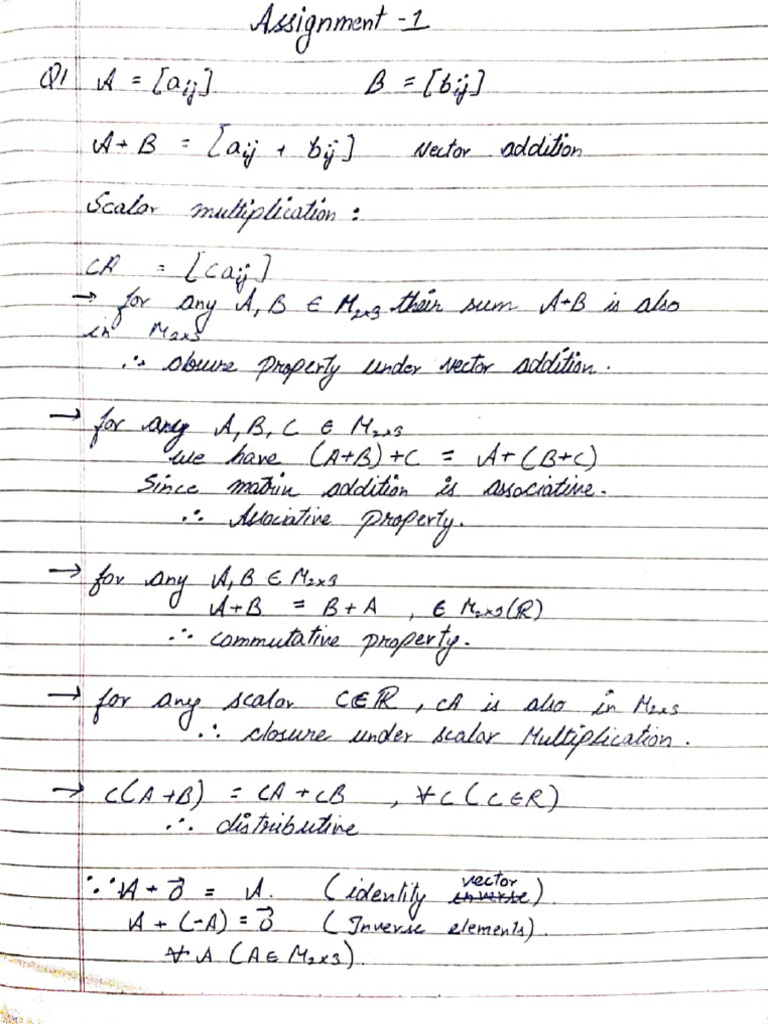 Assignment - 1
Q1 A = [aij] B = [bij]
A + B = [aij + bij] vector addition
Scalar multiplication :
cA = [caij]
→ for any A, B ∈ M₂ₓ₃ their sum A+B is also
in M₂ₓ₃
∴ closure property under vector addition.
→ for any A, B, C ∈ M₂ₓ₃
we have (A+B)+C = A+(B+C)
Since matrix addition is associative.
∴ Associative property.
→ for any A, B ∈ M₂ₓ₃
A+B = B+A , ∈ M₂ₓ₃(R)
∴ commutative property.
→ for any scalar C∈R , cA is also in M₂ₓ₃
∴ closure under scalar Multiplication.
→ c(A+B) = cA + cB , ∀ c (c∈R)
∴ distributive
∵ A + 0⃗ = A. (identity vector inverse).
A + (-A) = 0⃗ (Inverse elements).
∀ A (A∈ M₂ₓ₃).